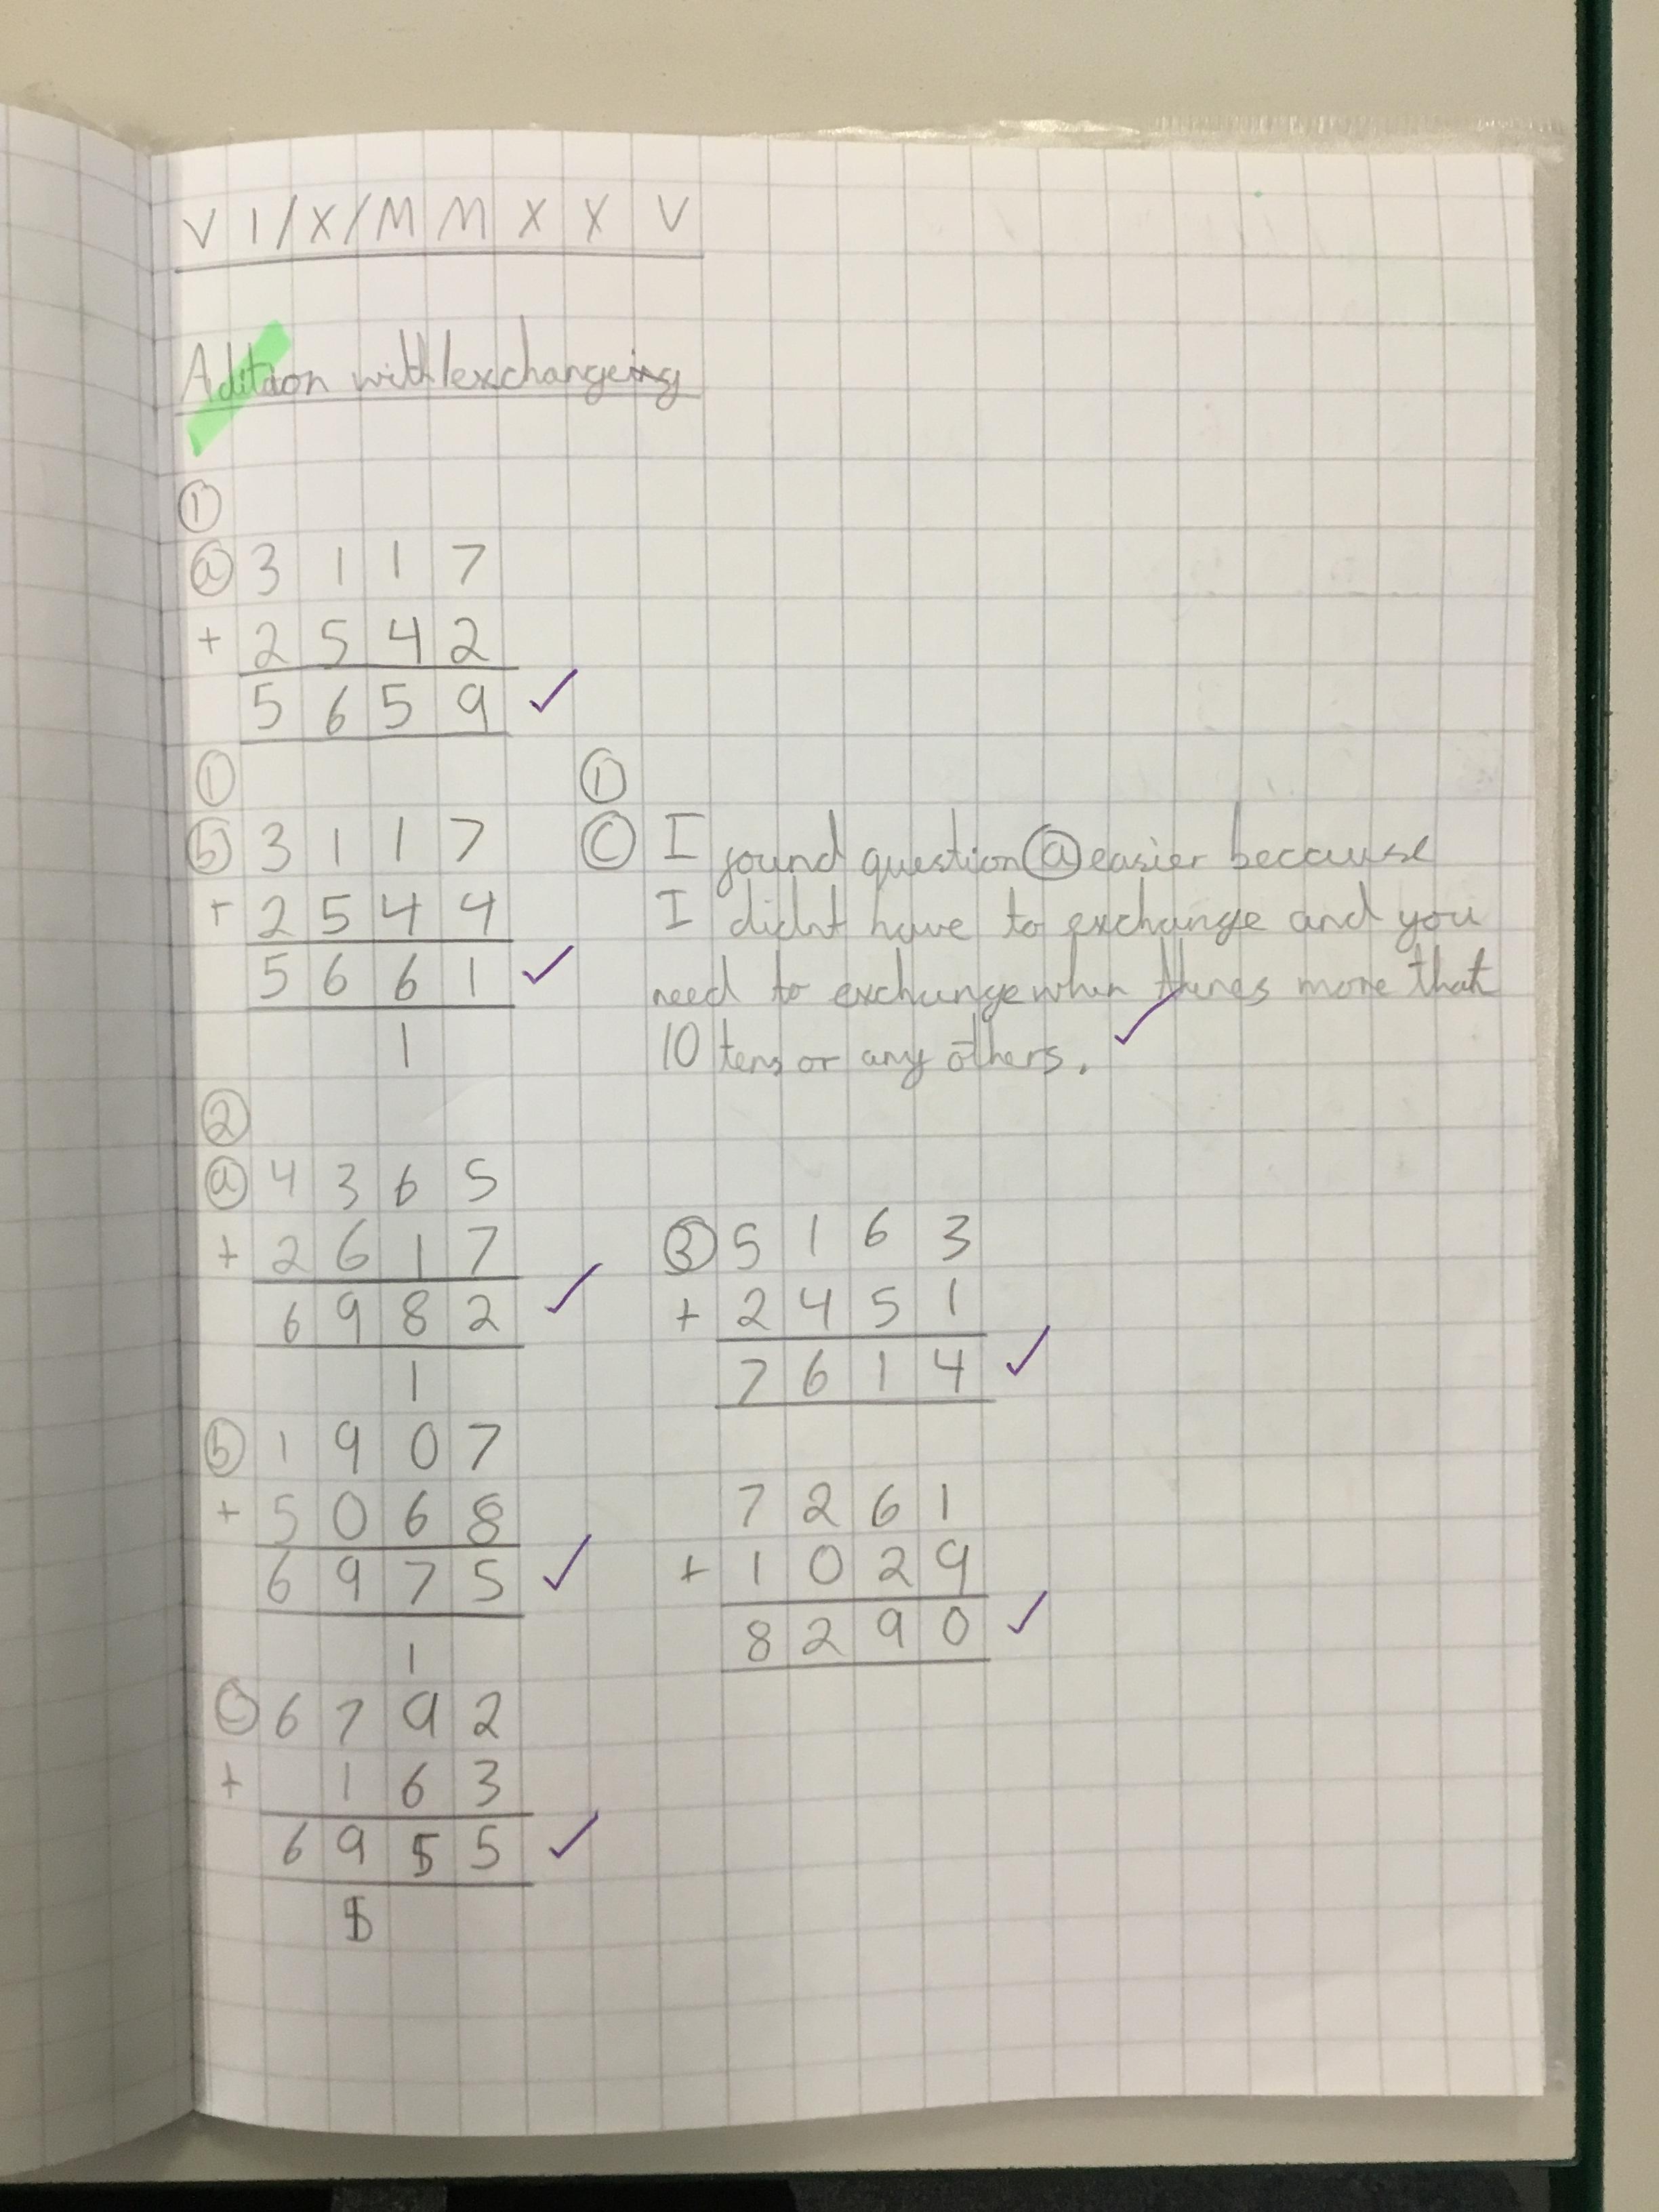 VI/X/MMXXV
Adition with exchangeing
①
ⓐ 3 1 1 7
+ 2 5 4 2
5 6 5 9 ✓
①
ⓑ 3 1 1 7
+ 2 5 4 4
5 6 6 1 ✓
1
①
ⓒ I found question ⓐ easier because
I didnt have to exchange and you
need to exchange when theres more that
10 tens or any others. ✓
②
ⓐ 4 3 6 5
+ 2 6 1 7
6 9 8 2 ✓
1
ⓑ 1 9 0 7
+ 5 0 6 8
6 9 7 5 ✓
1
ⓒ 6 7 9 2
+ 1 6 3
6 9 5 5 ✓
1
③ 5 1 6 3
+ 2 4 5 1
7 6 1 4 ✓
7 2 6 1
+ 1 0 2 9
8 2 9 0 ✓